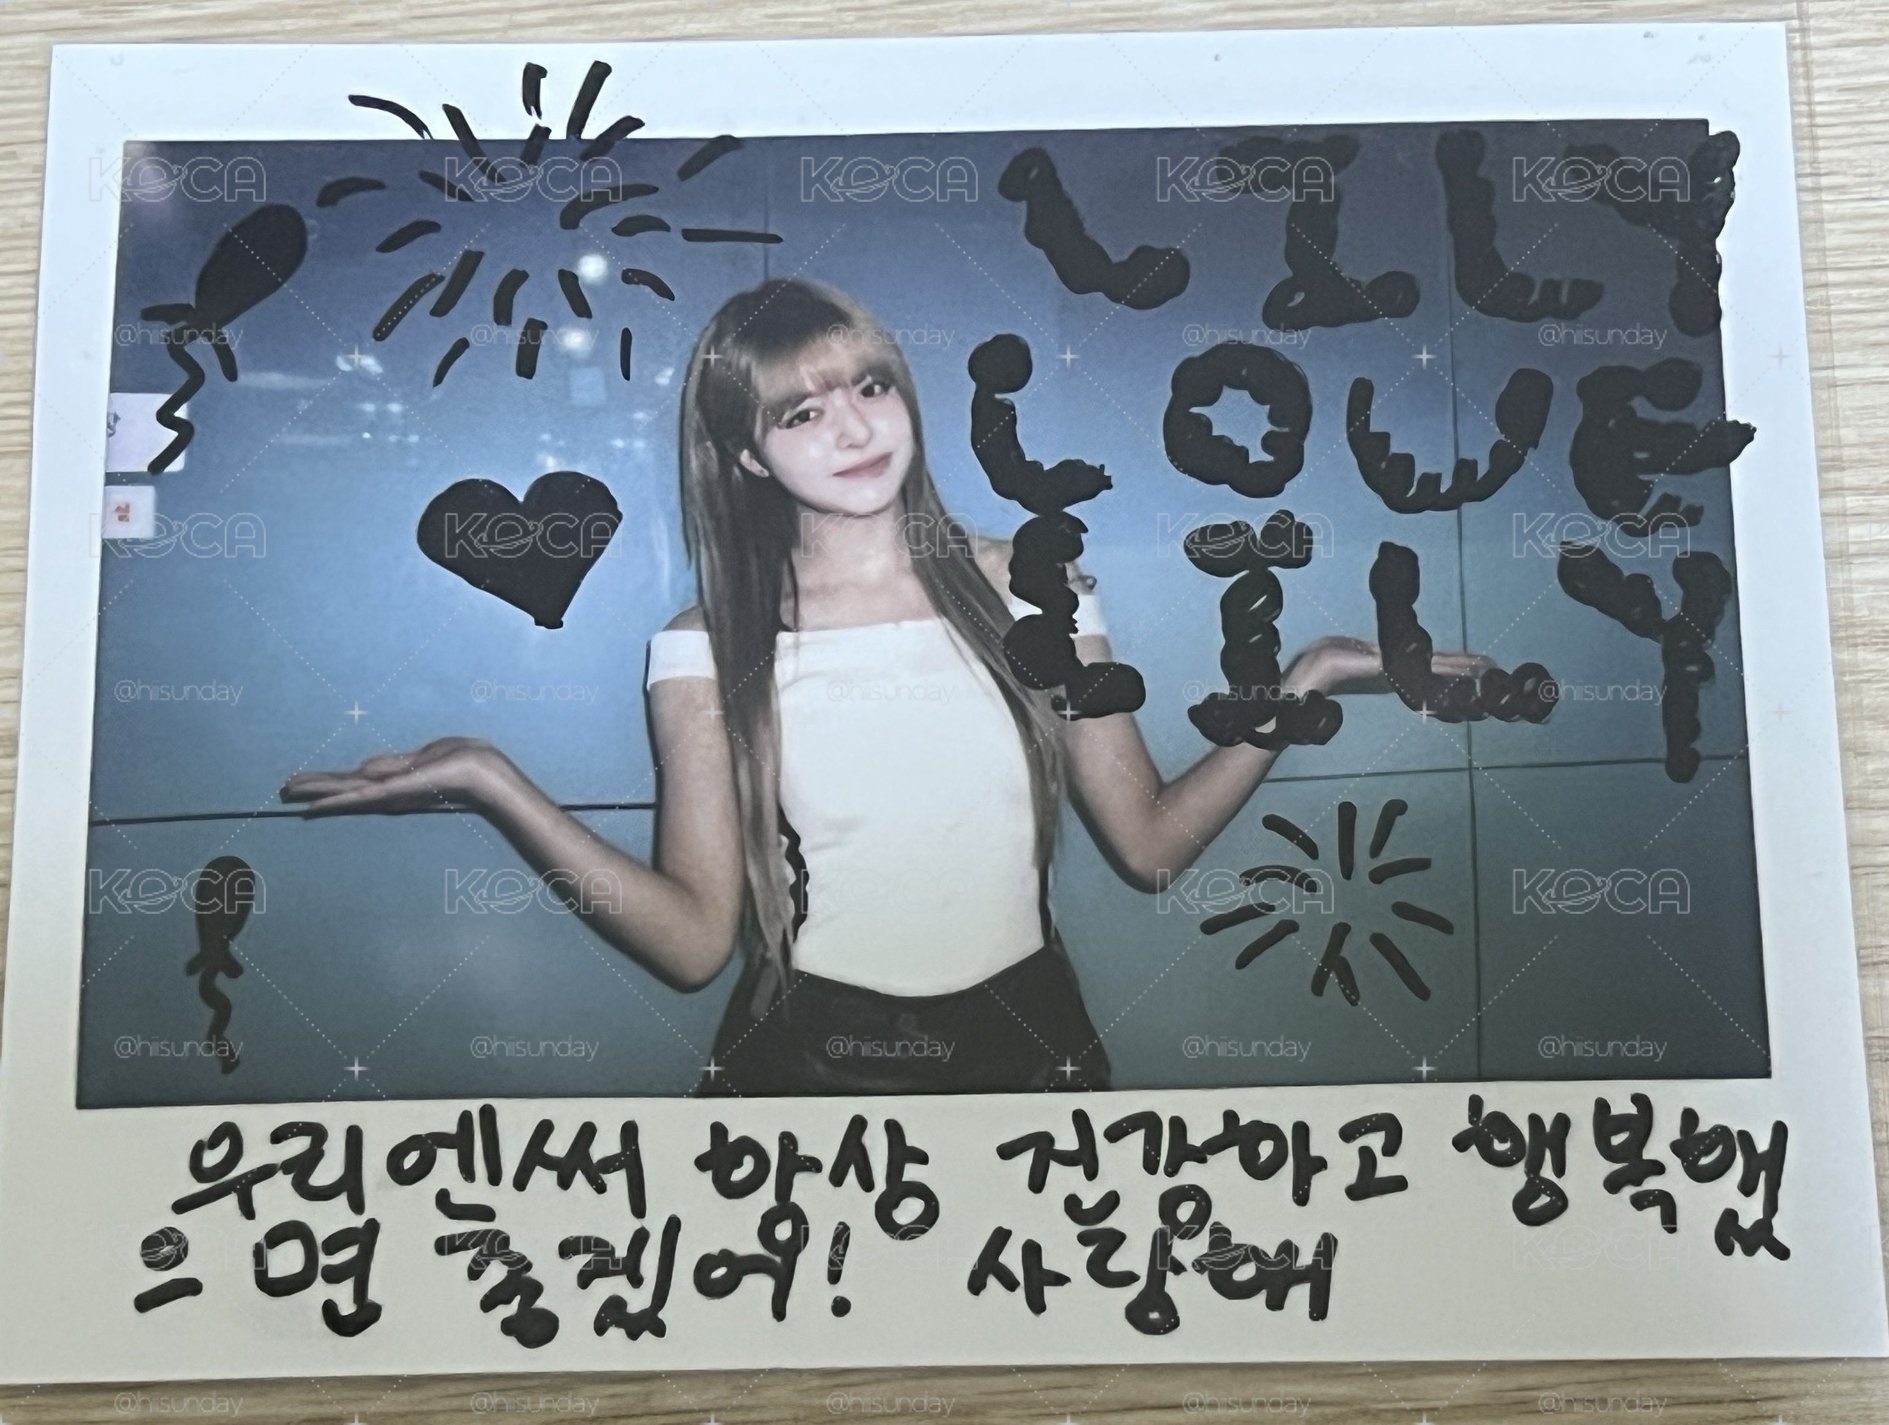 LILY
LOVE
LILY
우리엔써 항상 건강하고 행복했
으면 좋겠어! 사랑해
KOCA
@hiisunday